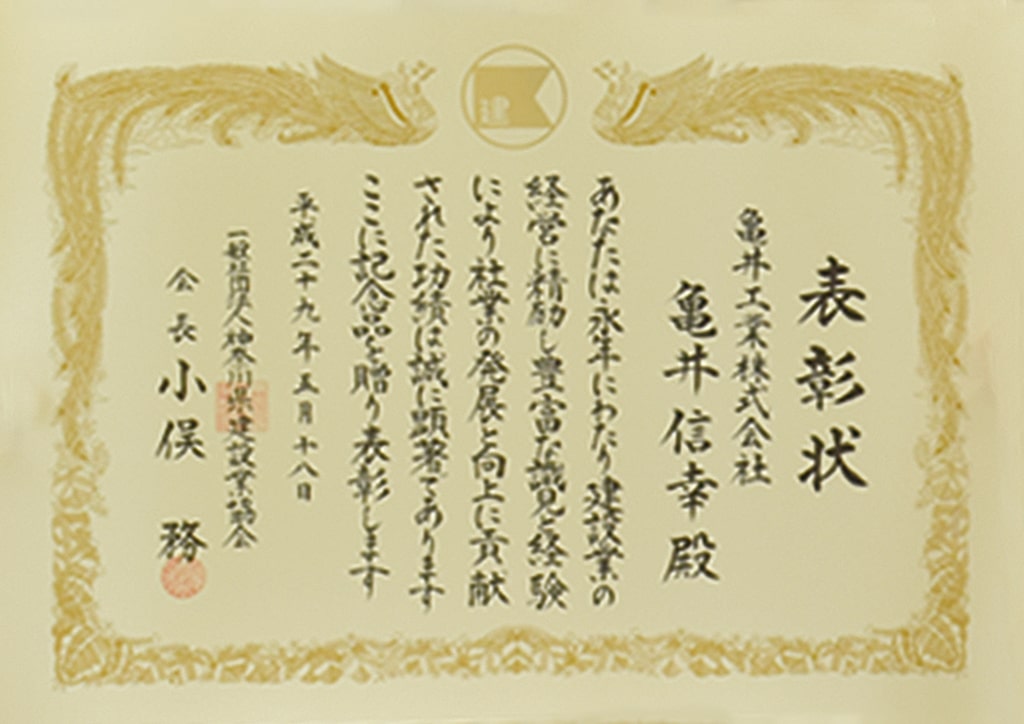 表彰状
亀井工業株式会社
亀井信幸殿
あなたは永年にわたり建設業の
経営に精励し豊富な識見と経験
により社業の発展と向上に貢献
された功績は誠に顕著であります
ここに記念品を贈り表彰します
平成二十九年五月十八日
一般社団法人神奈川県建設業協会
会長 小俣 務
建